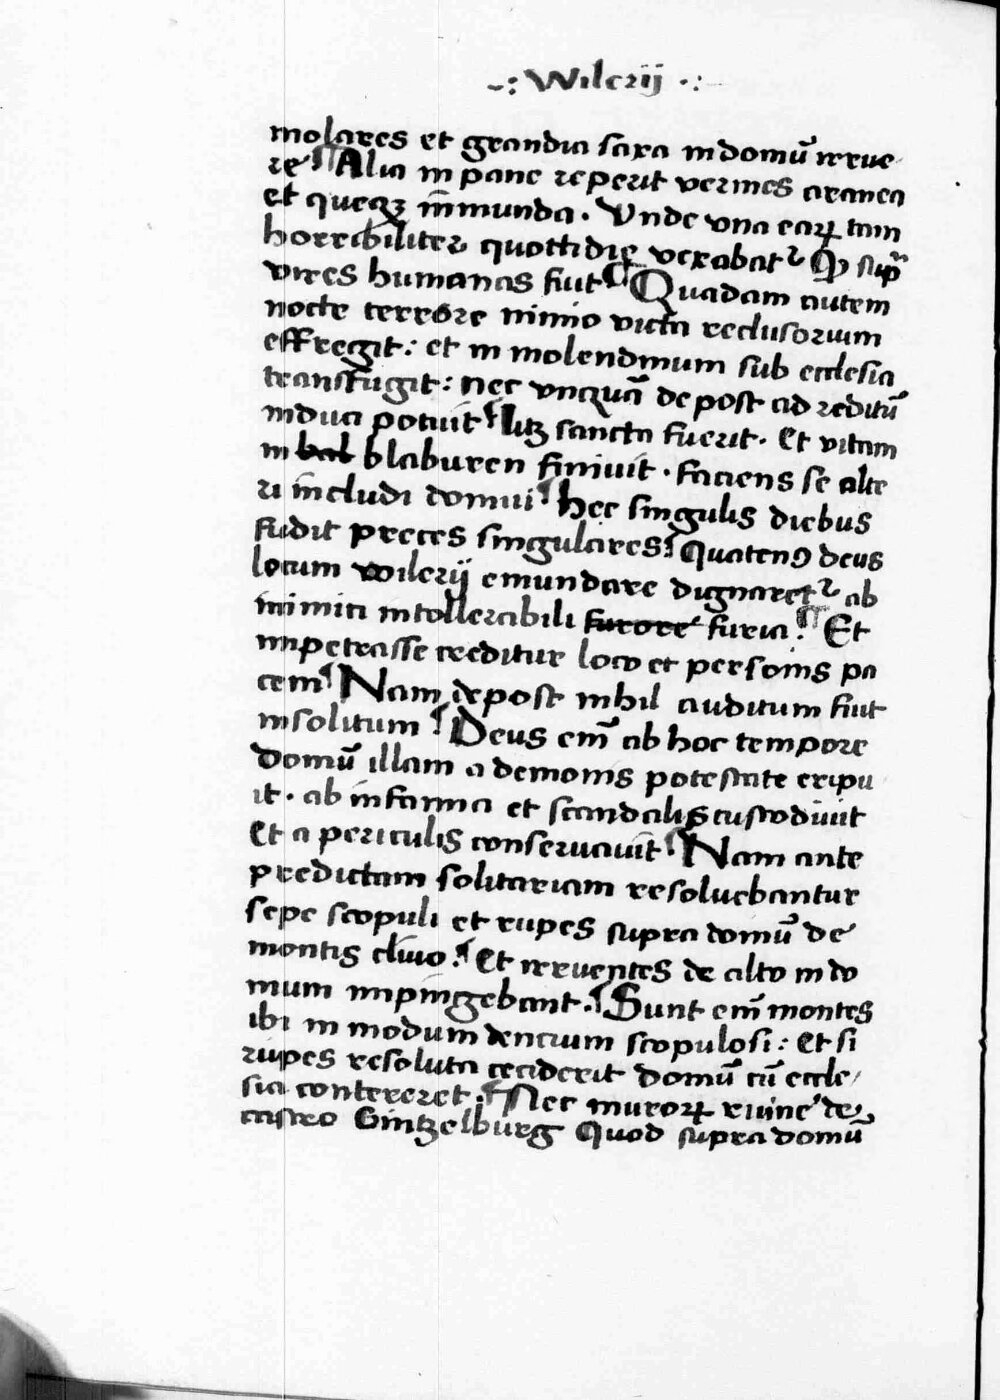 -: Wilerij .:
molares et grandia saxa in domū irrue-
re ¶ Alia in pane reperit vermes aranea
et queqꝫ īmunda. Vnde vna eaꝝ tam
horribiliter quottidie vexabat᷑ qͥ sup̄
vires humanas fuit ¶ Quadam autem
nocte terrore nimio victa reclusorium
effregit: et in molendinum sub ecclesia
transfugit: nec vnquā de post ad reditū
induci potuit ¶ Licꝫ sancta fuerit. Et vitam
in bal blaburen finiuit. faciens se alte
ri includi domui ¶ Hec singulis diebus
fudit preces singulares: quatenꝰ deus
locum wilerij emundare dignaret᷑ ab
inimici intollerabili furore furia. ¶ Et
impetrasse creditur loco et personis pa
cem ¶ Nam de post nihil auditum fuit
insolitum ¶ Deus em̄ ab hoc tempore
domū illam a demonis potestate eripu
it. ab infamia et scandalis custodiuit
Et a periculis conseruauit ¶ Nam ante
predictam solitariam resoluebantur
sepe scopuli et rupes supra domū de
montis cliuo. ¶ Et irruentes de alto in do
mum impingebant. ¶ Sunt em̄ montes
ibi in modum dencium scopulosi: Et si
rupes resoluta ceciderit domū cū eccle/
sia contereret. ¶ Nec muroꝝ ruine de
castro Gintzelburg Quod supra domū